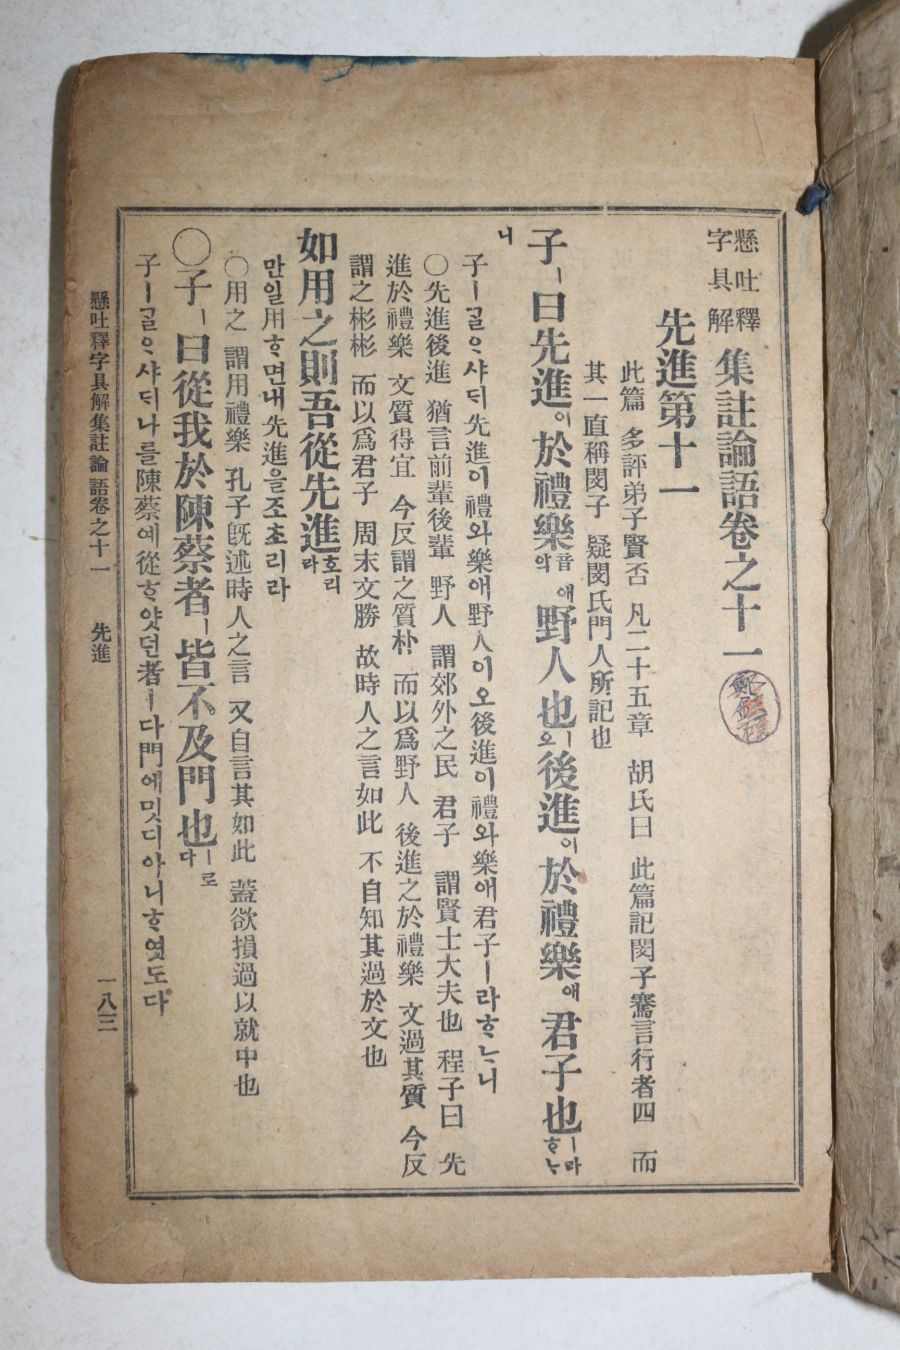 懸吐釋字具解 集註論語卷之十一
先進第十一
此篇 多評弟子賢否 凡二十五章 胡氏曰 此篇記閔子騫言行者四 而
其一直稱閔子 疑閔氏門人所記也
子ㅣ曰先進이於禮樂音악애野人也ㅣ오後進이於禮樂애君子也ㅣ라ᄒᆞᄂ
니
子ㅣᄀᆞᆯᄋᆞ샤ᄃᆡ先進이禮와樂애野人이오後進이禮와樂애君子ㅣ라ᄒᆞᄂᆞ니
○先進後進 猶言前輩後輩 野人 謂郊外之民 君子 謂賢士大夫也 程子曰 先
進於禮樂 文質得宜 今反謂之質朴 而以爲野人 後進之於禮樂 文過其質 今反
謂之彬彬 而以爲君子 周末文勝 故時人之言如此 不自知其過於文也
如用之則吾從先進호리라
만일用ᄒᆞ면내先進을조초리라
○用之 謂用禮樂 孔子旣述時人之言 又自言其如此 蓋欲損過以就中也
○子ㅣ曰從我於陳蔡者ㅣ皆不及門也ㅣ로다
子ㅣᄀᆞᆯᄋᆞ샤ᄃᆡ나를陳蔡예從ᄒᆞ얏던者ㅣ다門에밋디아니ᄒᆞ엿도다
懸吐釋字具解集註論語卷之十一 先進 一八三